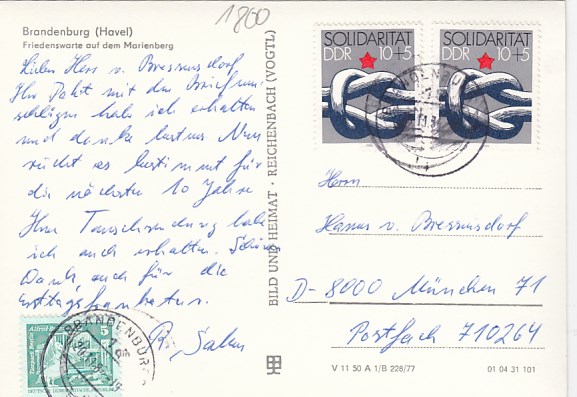 1800
Brandenburg (Havel)
Friedenswarte auf dem Marienberg
Lieber Herr v. Bressensdorf
Ihr Paket mit den Briefum-
schlägen habe ich erhalten
und danke bestens. Nun
reicht es bestimmt für
die nächsten 10 Jahre
Ihre Tauschsendung habe
ich auch erhalten. Schönen
Dank, auch für die
Ersttagskarten.
R.
BILD UND HEIMAT · REICHENBACH (VOGTL)
SOLIDARITÄT
DDR 10+5
SOLIDARITÄT
DDR 10+5
Herrn
Hanns v. Bressensdorf
D-8000 München 71
Postfach 710264
BRANDENBURG
5
V 11 50 A 1/B 228/77
01 04 31 101